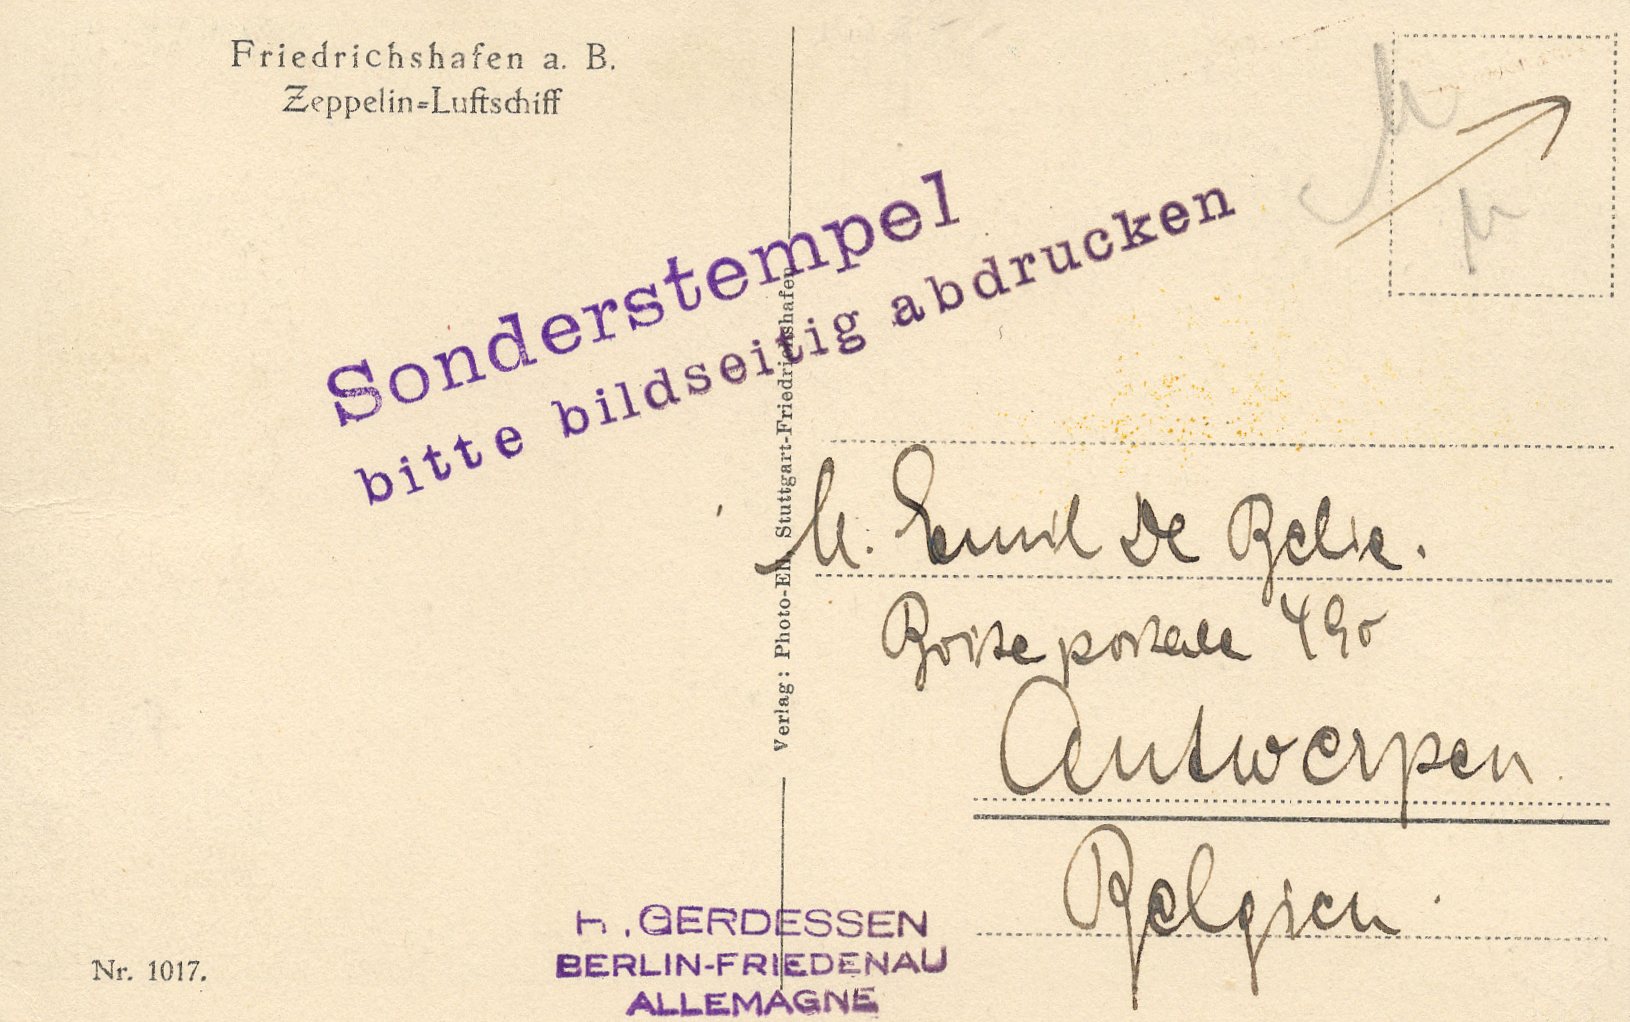 Friedrichshafen a. B.
Zeppelin=Luftschiff
Sonderstempel
bitte bildseitig abdrucken
Verlag: Photo-Eh, Stuttgart-Friedrichshafen
M. Emil De Belie.
Boite postale 490
Antwerpen
Belgien
H. GERDESSEN
BERLIN-FRIEDENAU
ALLEMAGNE
Nr. 1017.